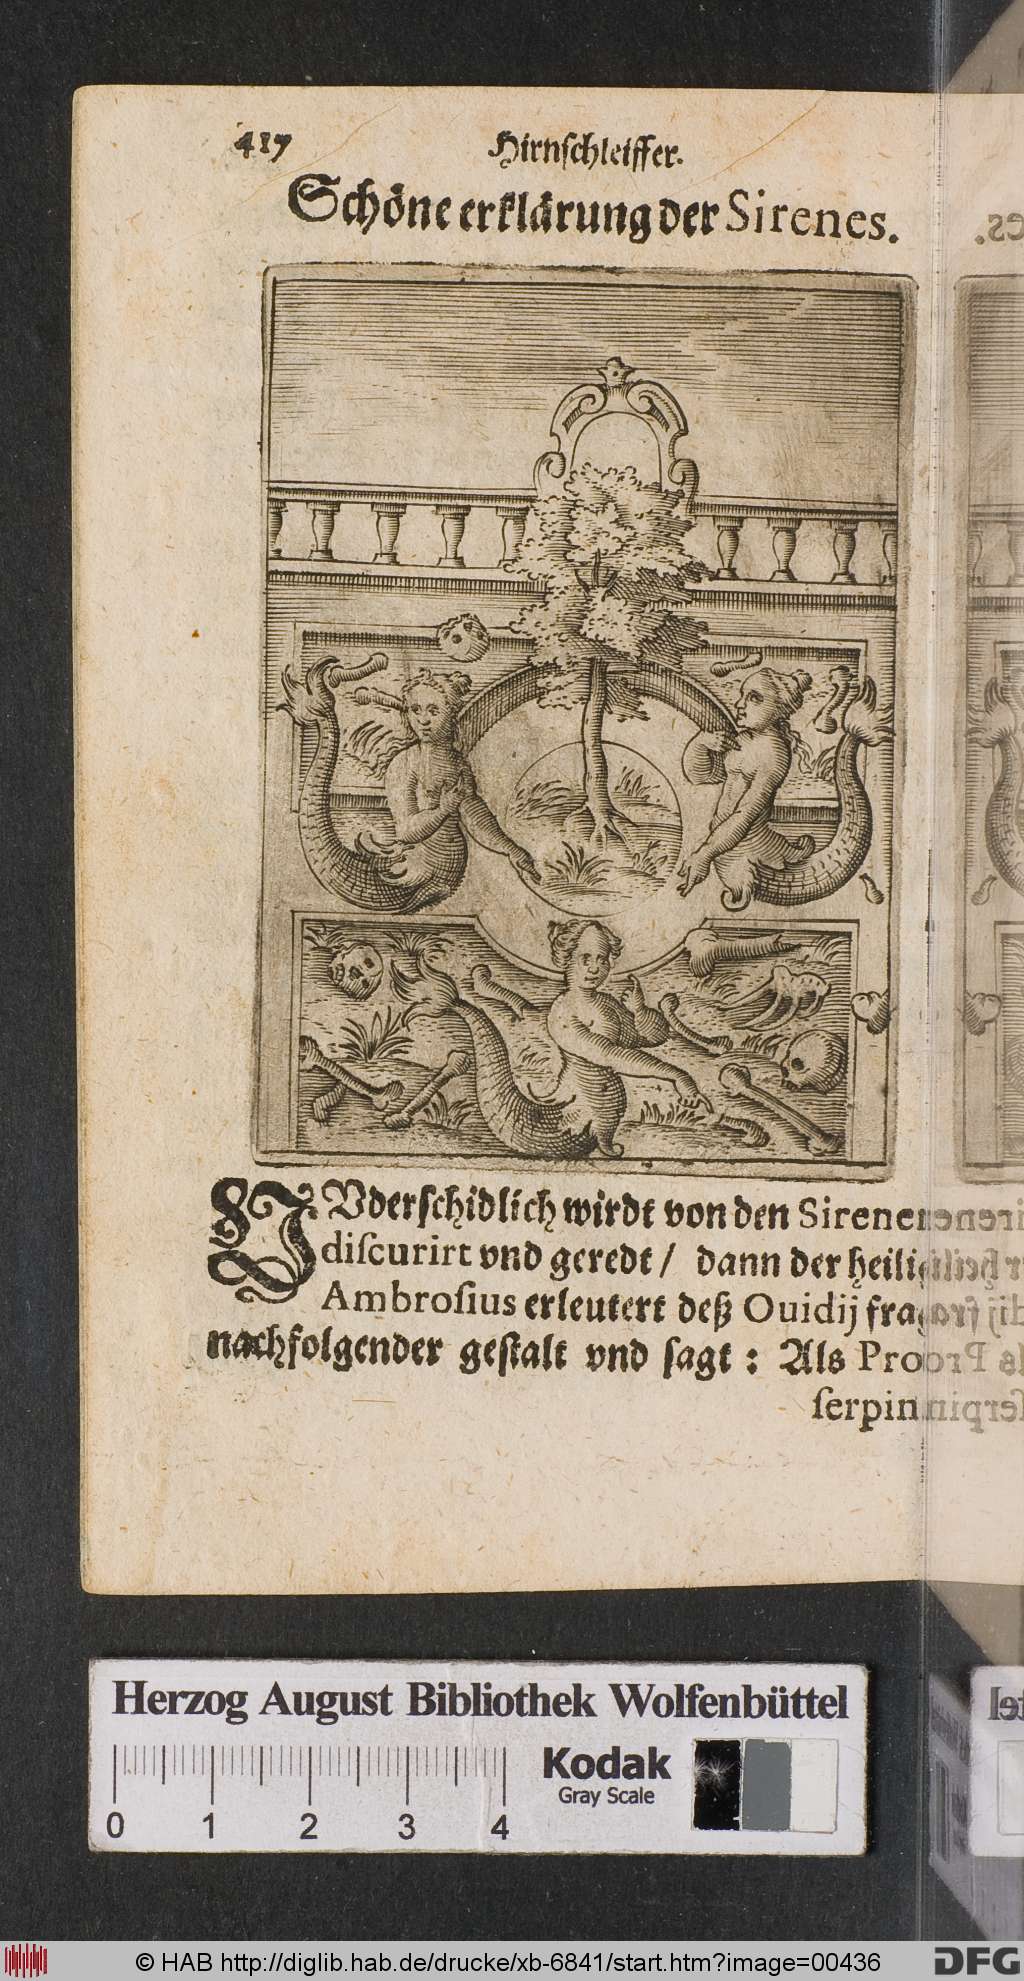 417
Hirnſchleiffer.
Schöne erklärung der Sirenes.
VNderſchidlich wirdt von den Sirenen
diſcurirt vnd geredt / dann der heilig
Ambroſius erleutert deß Ouidij frag
nachfolgender geſtalt vnd ſagt : Als Pro
ſerpin
Herzog August Bibliothek Wolfenbüttel
Kodak
Gray Scale
0 1 2 3 4
© HAB http://diglib.hab.de/drucke/xb-6841/start.htm?image=00436
DFG